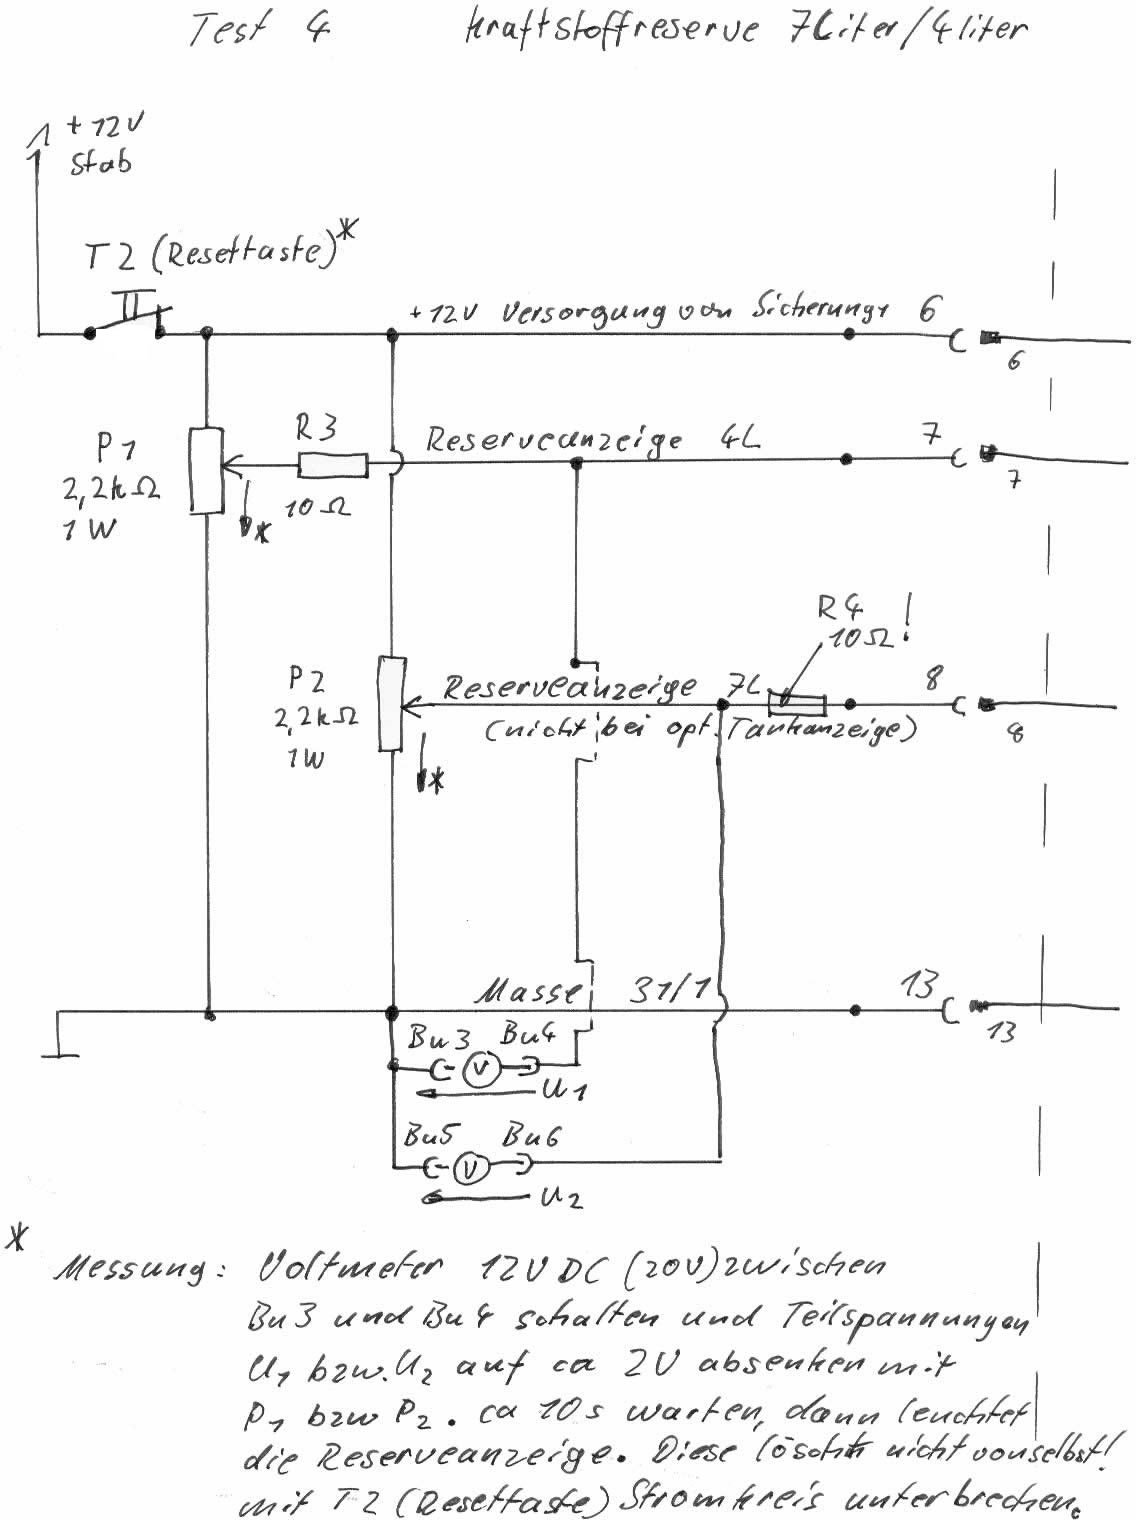 Test 4 Kraftstoffreserve 7Liter/4liter
+12V
Stab
T2 (Resettaste)*
+12V Versorgung von Sicherung 1 6
6
P1
2,2kΩ
1W
R3
10Ω
*
Reserveanzeige 4L 7
7
R4
10Ω!
P2
2,2kΩ
1W
*
Reserveanzeige 7L 8
(nicht bei opt. Tankanzeige)
8
Masse 31/1 13
13
Bu3 V Bu4
U1
Bu5 V Bu6
U2
*
Messung: Voltmeter 12V DC (20V) zwischen
Bu3 und Bu4 schalten und Teilspannungen
U1 bzw. U2 auf ca 2V absenken mit
P1 bzw P2. ca 10s warten, dann leuchtet
die Reserveanzeige. Diese löscht nicht von selbst!
mit T2 (Resettaste) Stromkreis unterbrechen.